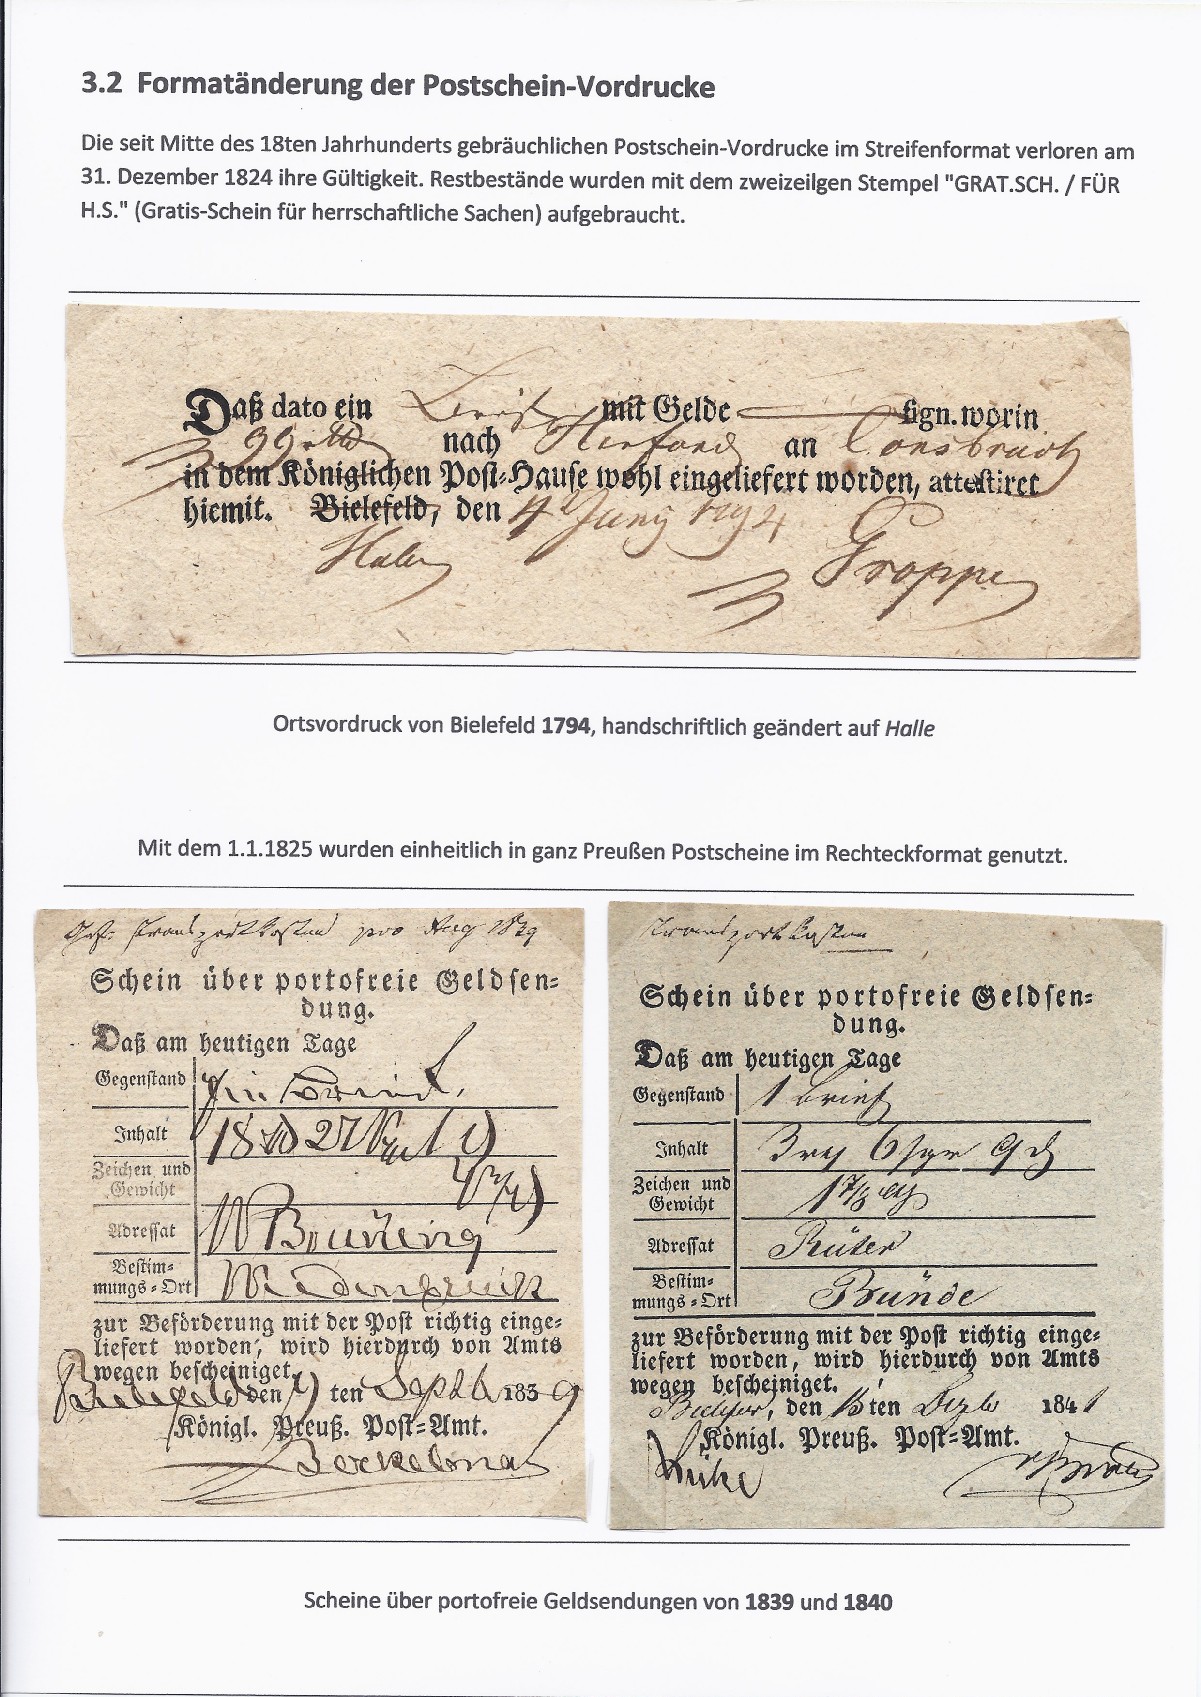 3.2 Formatänderung der Postschein-Vordrucke
Die seit Mitte des 18ten Jahrhunderts gebräuchlichen Postschein-Vordrucke im Streifenformat verloren am
31. Dezember 1824 ihre Gültigkeit. Restbestände wurden mit dem zweizeilgen Stempel "GRAT.SCH. / FÜR
H.S." (Gratis-Schein für herrschaftliche Sachen) aufgebraucht.
Daß dato ein Brief mit Gelde sign. worin
99 nach Herford an Consbruch
in dem Königlichen Post-Hause wohl eingeliefert worden, attestiret
hiemit. Bielefeld, den 4 Juny 1794
Halle Troppe
Ortsvordruck von Bielefeld 1794, handschriftlich geändert auf Halle
Mit dem 1.1.1825 wurden einheitlich in ganz Preußen Postscheine im Rechteckformat genutzt.
Transportkosten pro Aug 1839
Schein über portofreie Geldsen=
dung.
Daß am heutigen Tage
Gegenstand
Inhalt 18 27
Zeichen und
Gewicht
Adressat Brüning
Bestim=
mungs=Ort Wiedenbrück
zur Beförderung mit der Post richtig einge=
liefert worden, wird hierdurch von Amts
wegen bescheiniget.
Bielefeld den ten Septb 1839
Königl. Preuß. Post=Amt.
Transportkosten
Schein über portofreie Geldsen=
dung.
Daß am heutigen Tage
Gegenstand 1 Brief
Inhalt 6 sgr 9
Zeichen und
Gewicht 1 7/8
Adressat Rüter
Bestim=
mungs=Ort Bünde
zur Beförderung mit der Post richtig einge=
liefert worden, wird hierdurch von Amts
wegen bescheiniget.
den ten 184
Königl. Preuß. Post=Amt.
Scheine über portofreie Geldsendungen von 1839 und 1840